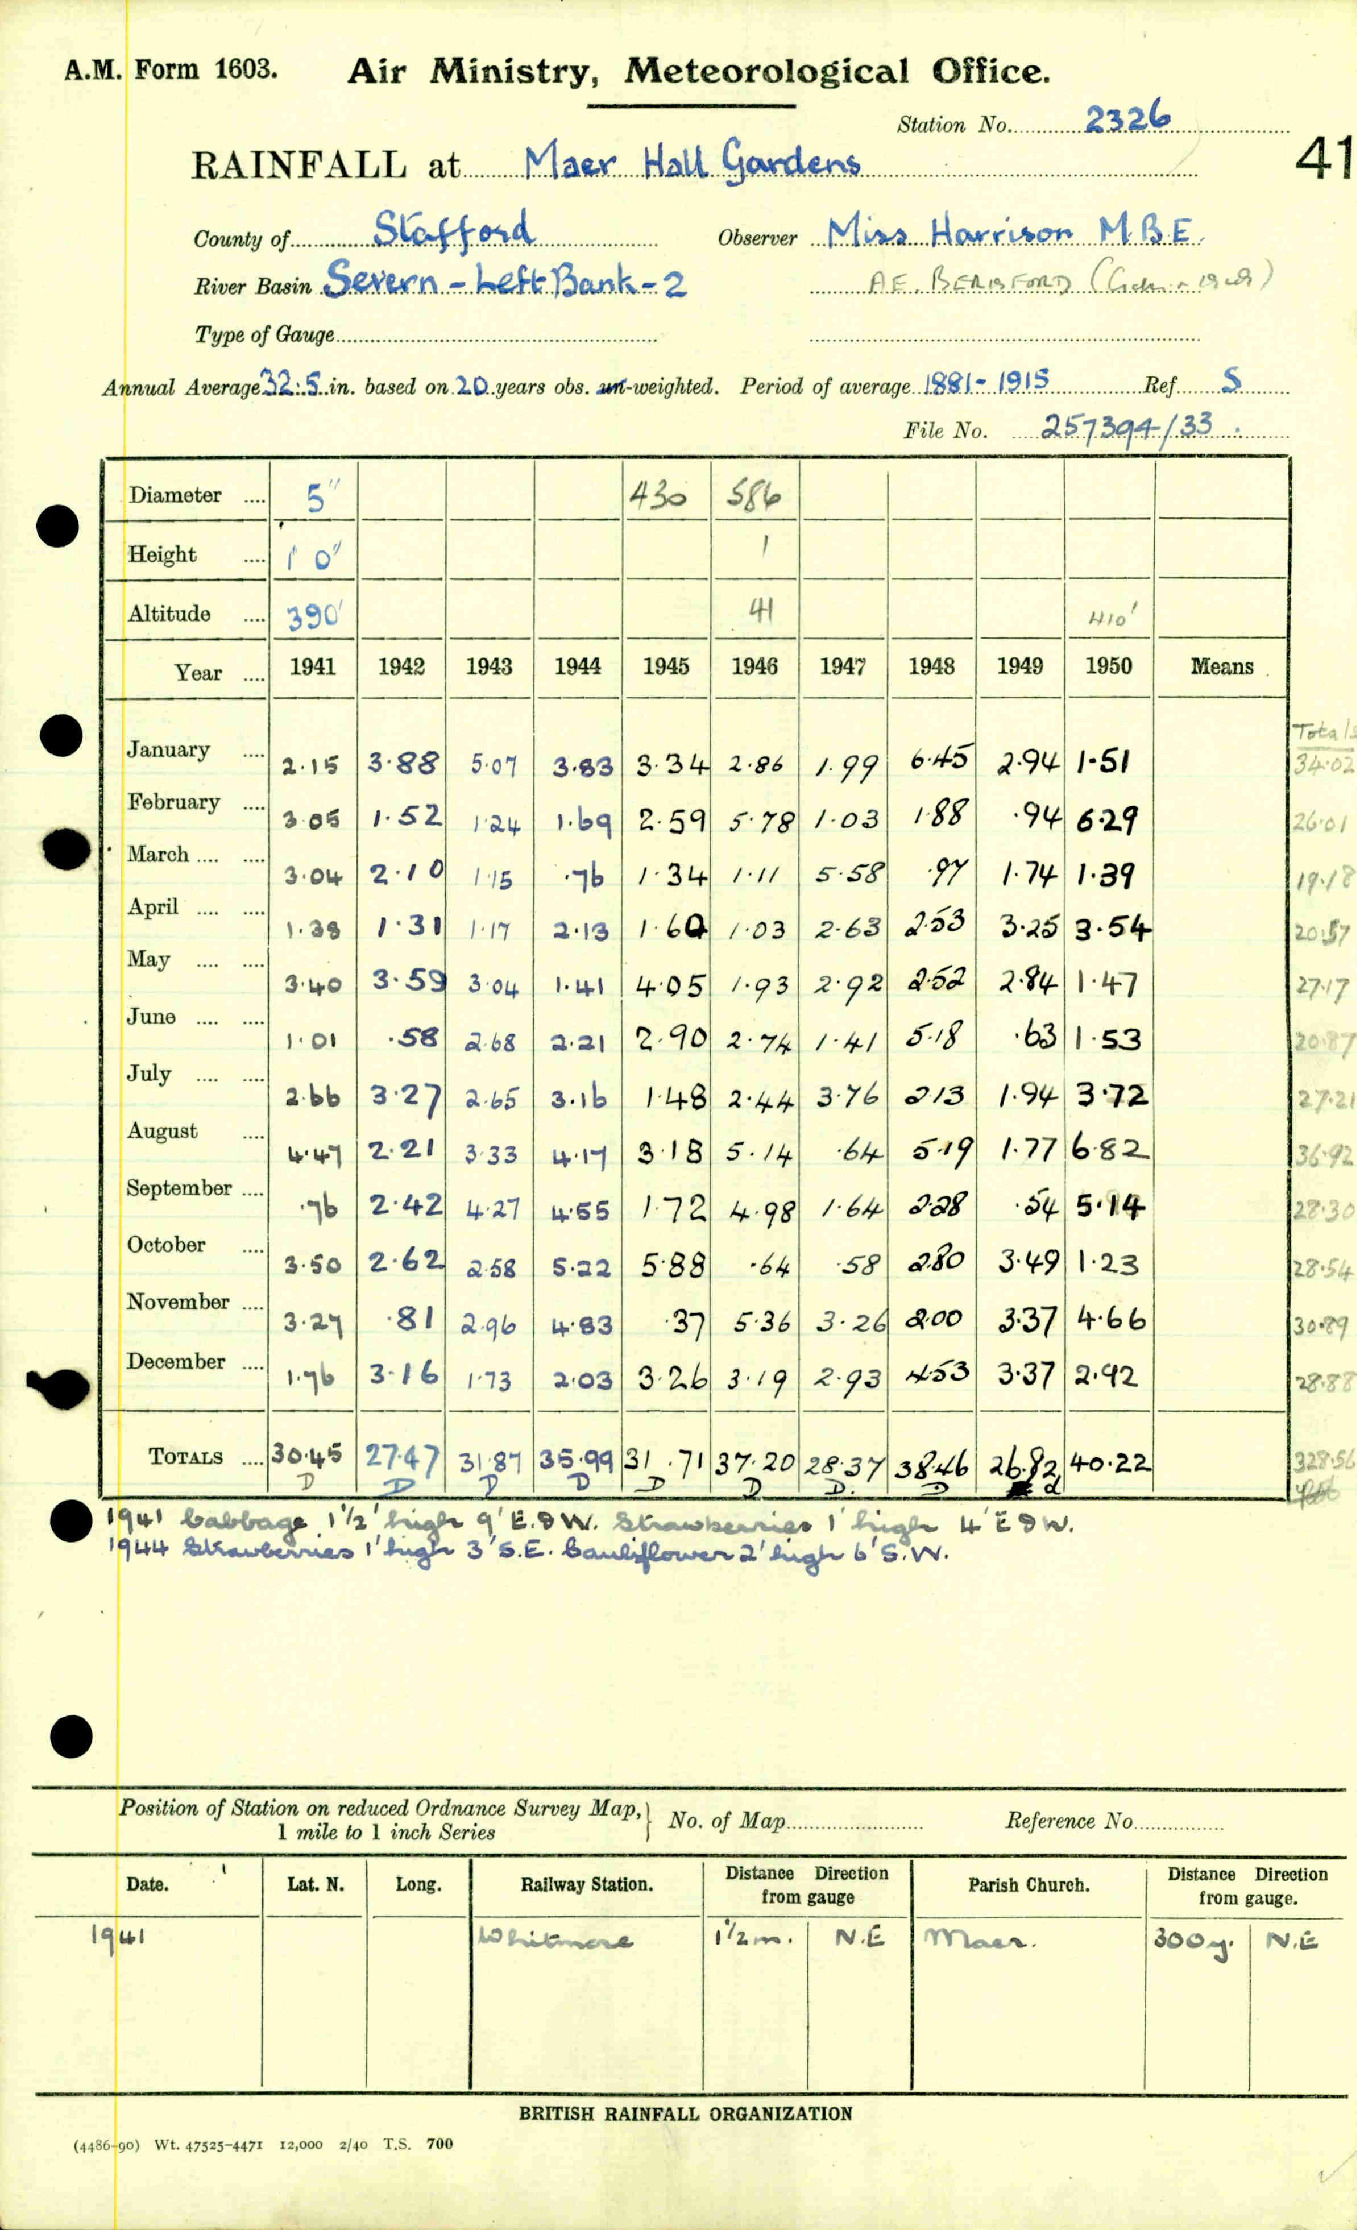 A.M. Form 1603. Air Ministry, Meteorological Office.
Station No. 2326
RAINFALL at Maer Hall Gardens 41
County of Stafford Observer Miss Harrison M.B.E.
River Basin Severn - Left Bank - 2 A.E. BERISFORD
Type of Gauge
Annual Average 32.5 in. based on 20 years obs. un-weighted. Period of average 1881 - 1915 Ref S
File No. 257394/33.
Diameter .... 5" 430 586
Height .... 1' 0" 1
Altitude .... 390' 41 410'
Year .... 1941 1942 1943 1944 1945 1946 1947 1948 1949 1950 Means
Totals
January .... 2.15 3.88 5.07 3.83 3.34 2.86 1.99 6.45 2.94 1.51 34.02
February .... 3.05 1.52 1.24 1.69 2.59 5.78 1.03 1.88 .94 6.29 26.01
March .... .... 3.04 2.10 1.15 .76 1.34 1.11 5.58 .97 1.74 1.39 19.18
April .... .... 1.38 1.31 1.17 2.13 1.60 1.03 2.63 2.53 3.25 3.54 20.57
May .... .... 3.40 3.59 3.04 1.41 4.05 1.93 2.92 2.52 2.84 1.47 27.17
June .... .... 1.01 .58 2.68 2.21 2.90 2.74 1.41 5.18 .63 1.53 20.87
July .... .... 2.66 3.27 2.65 3.16 1.48 2.44 3.76 2.13 1.94 3.72 27.21
August .... 4.47 2.21 3.33 4.17 3.18 5.14 .64 5.19 1.77 6.82 36.92
September .... .76 2.42 4.27 4.55 1.72 4.98 1.64 2.28 .54 5.14 28.30
October .... 3.50 2.62 2.58 5.22 5.88 .64 .58 2.80 3.49 1.23 28.54
November .... 3.27 .81 2.96 4.83 .37 5.36 3.26 2.00 3.37 4.66 30.89
December .... 1.76 3.16 1.73 2.03 3.26 3.19 2.93 4.53 3.37 2.92 28.88
TOTALS .... 30.45 27.47 31.87 35.99 31.71 37.20 28.37 38.46 26.82 40.22 328.56
D D D D D D D. D d
1941 Cabbage 1½' high 9' E. & W. Strawberries 1' high 4' E & W.
1944 Strawberries 1' high 3' S.E. Cauliflower 2' high 6' S.W.
Position of Station on reduced Ordnance Survey Map,} No. of Map Reference No.
1 mile to 1 inch Series
Date. Lat. N. Long. Railway Station. Distance Direction from gauge Parish Church. Distance Direction from gauge.
1941 Whitmore 1½ m. N.E Maer. 300y. N.E
BRITISH RAINFALL ORGANIZATION
(4486-90) Wt. 47525-4471 12,000 2/40 T.S. 700